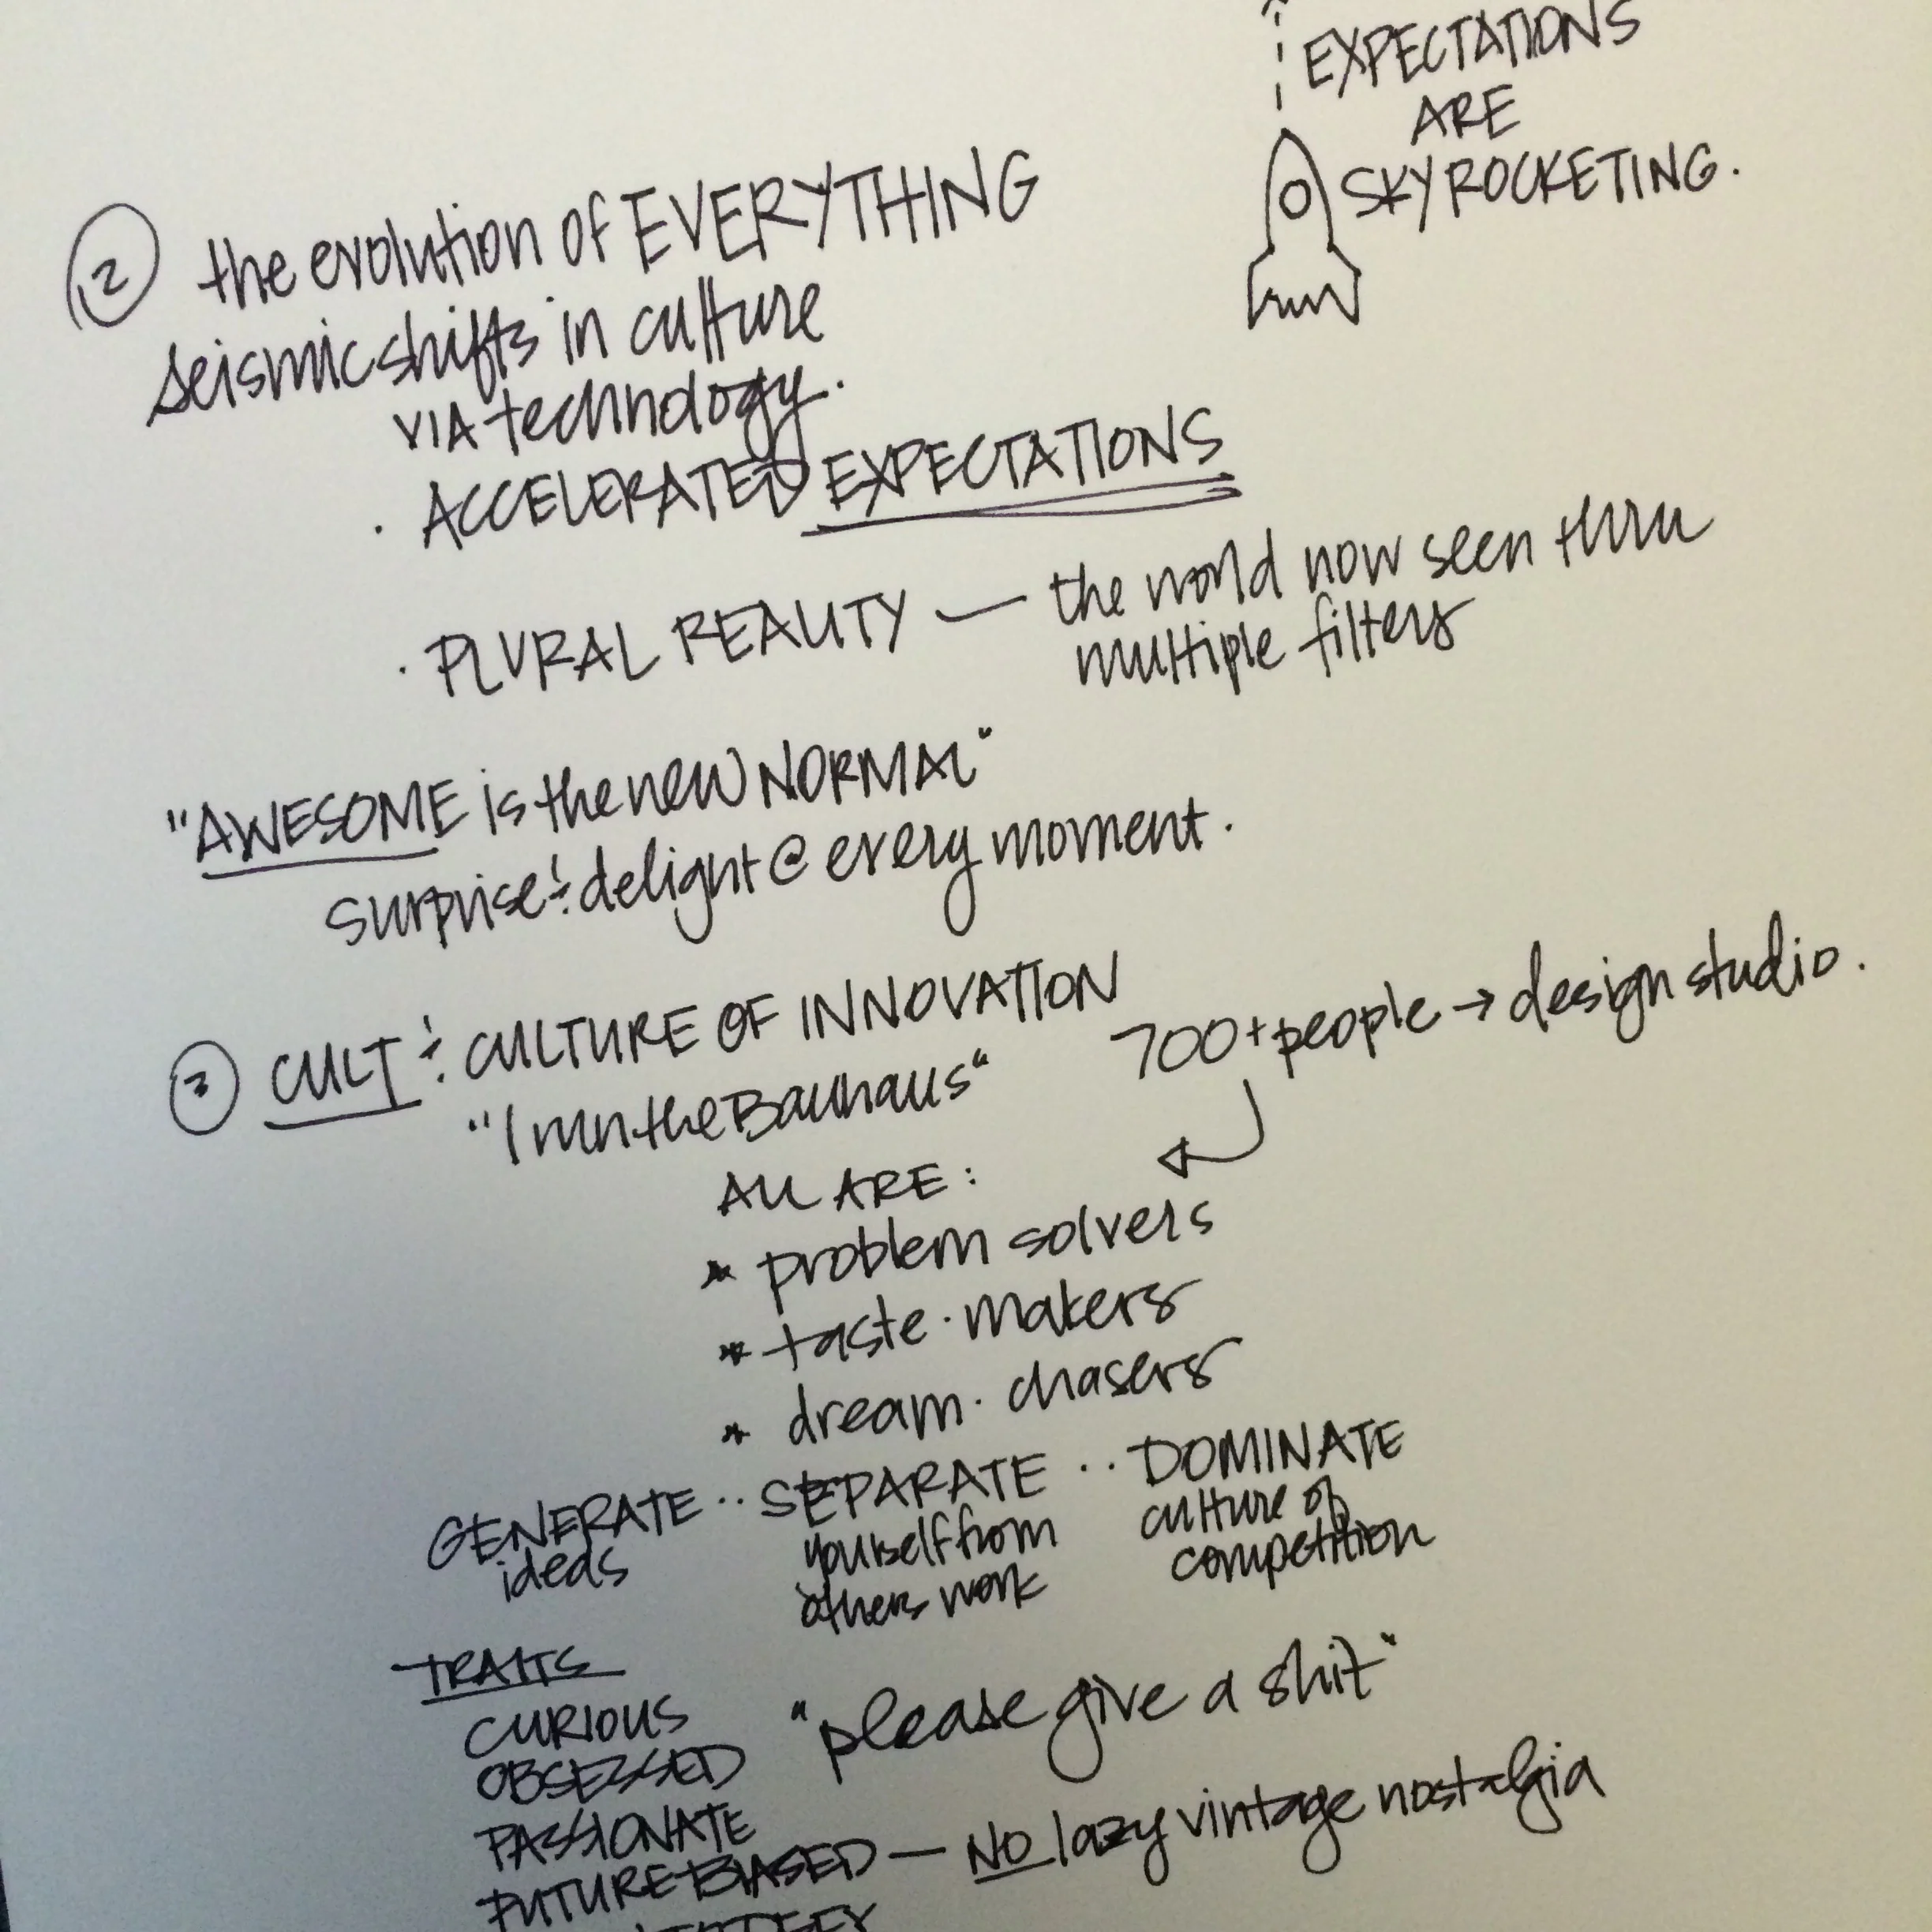 EXPECTATIONS
ARE
SKYROCKETING.
2 the evolution of EVERYTHING
seismic shifts in culture
VIA technology.
· ACCELERATED EXPECTATIONS
· PLURAL REALITY — the world now seen thru
multiple filters
"AWESOME is the new NORMAL"
surprise & delight @ every moment.
3 CULT & CULTURE OF INNOVATION
700+ people → design studio.
"I run the Bauhaus"
ALL ARE:
* problem solvers
* taste·makers
* dream·chasers
GENERATE ·· SEPARATE ·· DOMINATE
ideas yourself from culture of
others work competition
TRAITS
CURIOUS
OBSESSED "please give a shit"
PASSIONATE
FUTURE-BIASED — NO lazy vintage nostalgia